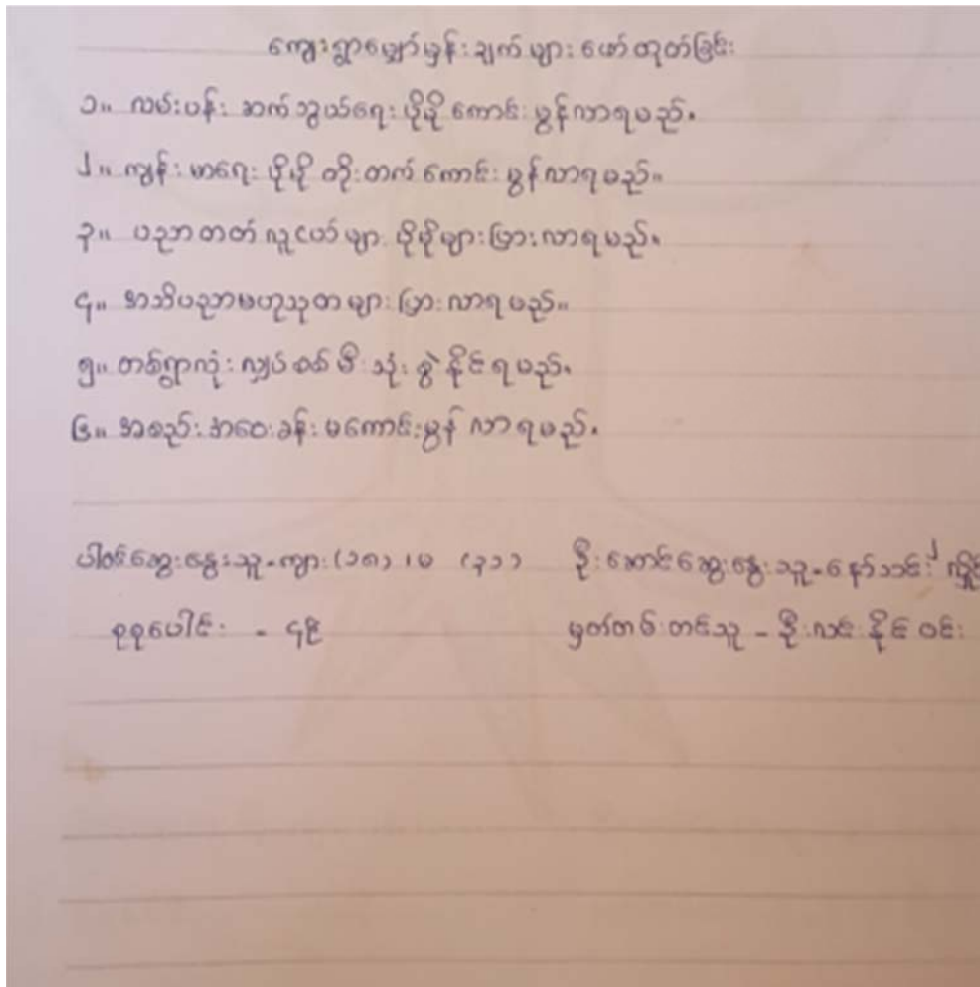 ကျေးရွာမျှော်မှန်းချက်များ ဖော်ထုတ်ခြင်း
၁။ လမ်းပန်း ဆက်သွယ်ရေး ပိုမို ကောင်းမွန်လာရမည်။
၂။ ကျန်းမာရေး ပိုမို တိုးတက် ကောင်းမွန်လာရမည်။
၃။ ပညာတတ် လူငယ်များ ပိုမိုများပြားလာရမည်။
၄။ အသိပညာဗဟုသုတများ ပြားလာရမည်။
၅။ တစ်ရွာလုံး လျှပ်စစ်မီး သုံးစွဲနိုင်ရမည်။
၆။ အစည်းအဝေးခန်းမကောင်းမွန်လာရမည်။
ပါဝင်ဆွေးနွေးသူ - ကျား (၁၈) ၊ မ (၃၁) ဦးဆောင်ဆွေးနွေးသူ - နော်သင်း
စုစုပေါင်း - ၄၉ မှတ်တမ်းတင်သူ - ဦးလင်းနိုင်ဝင်း